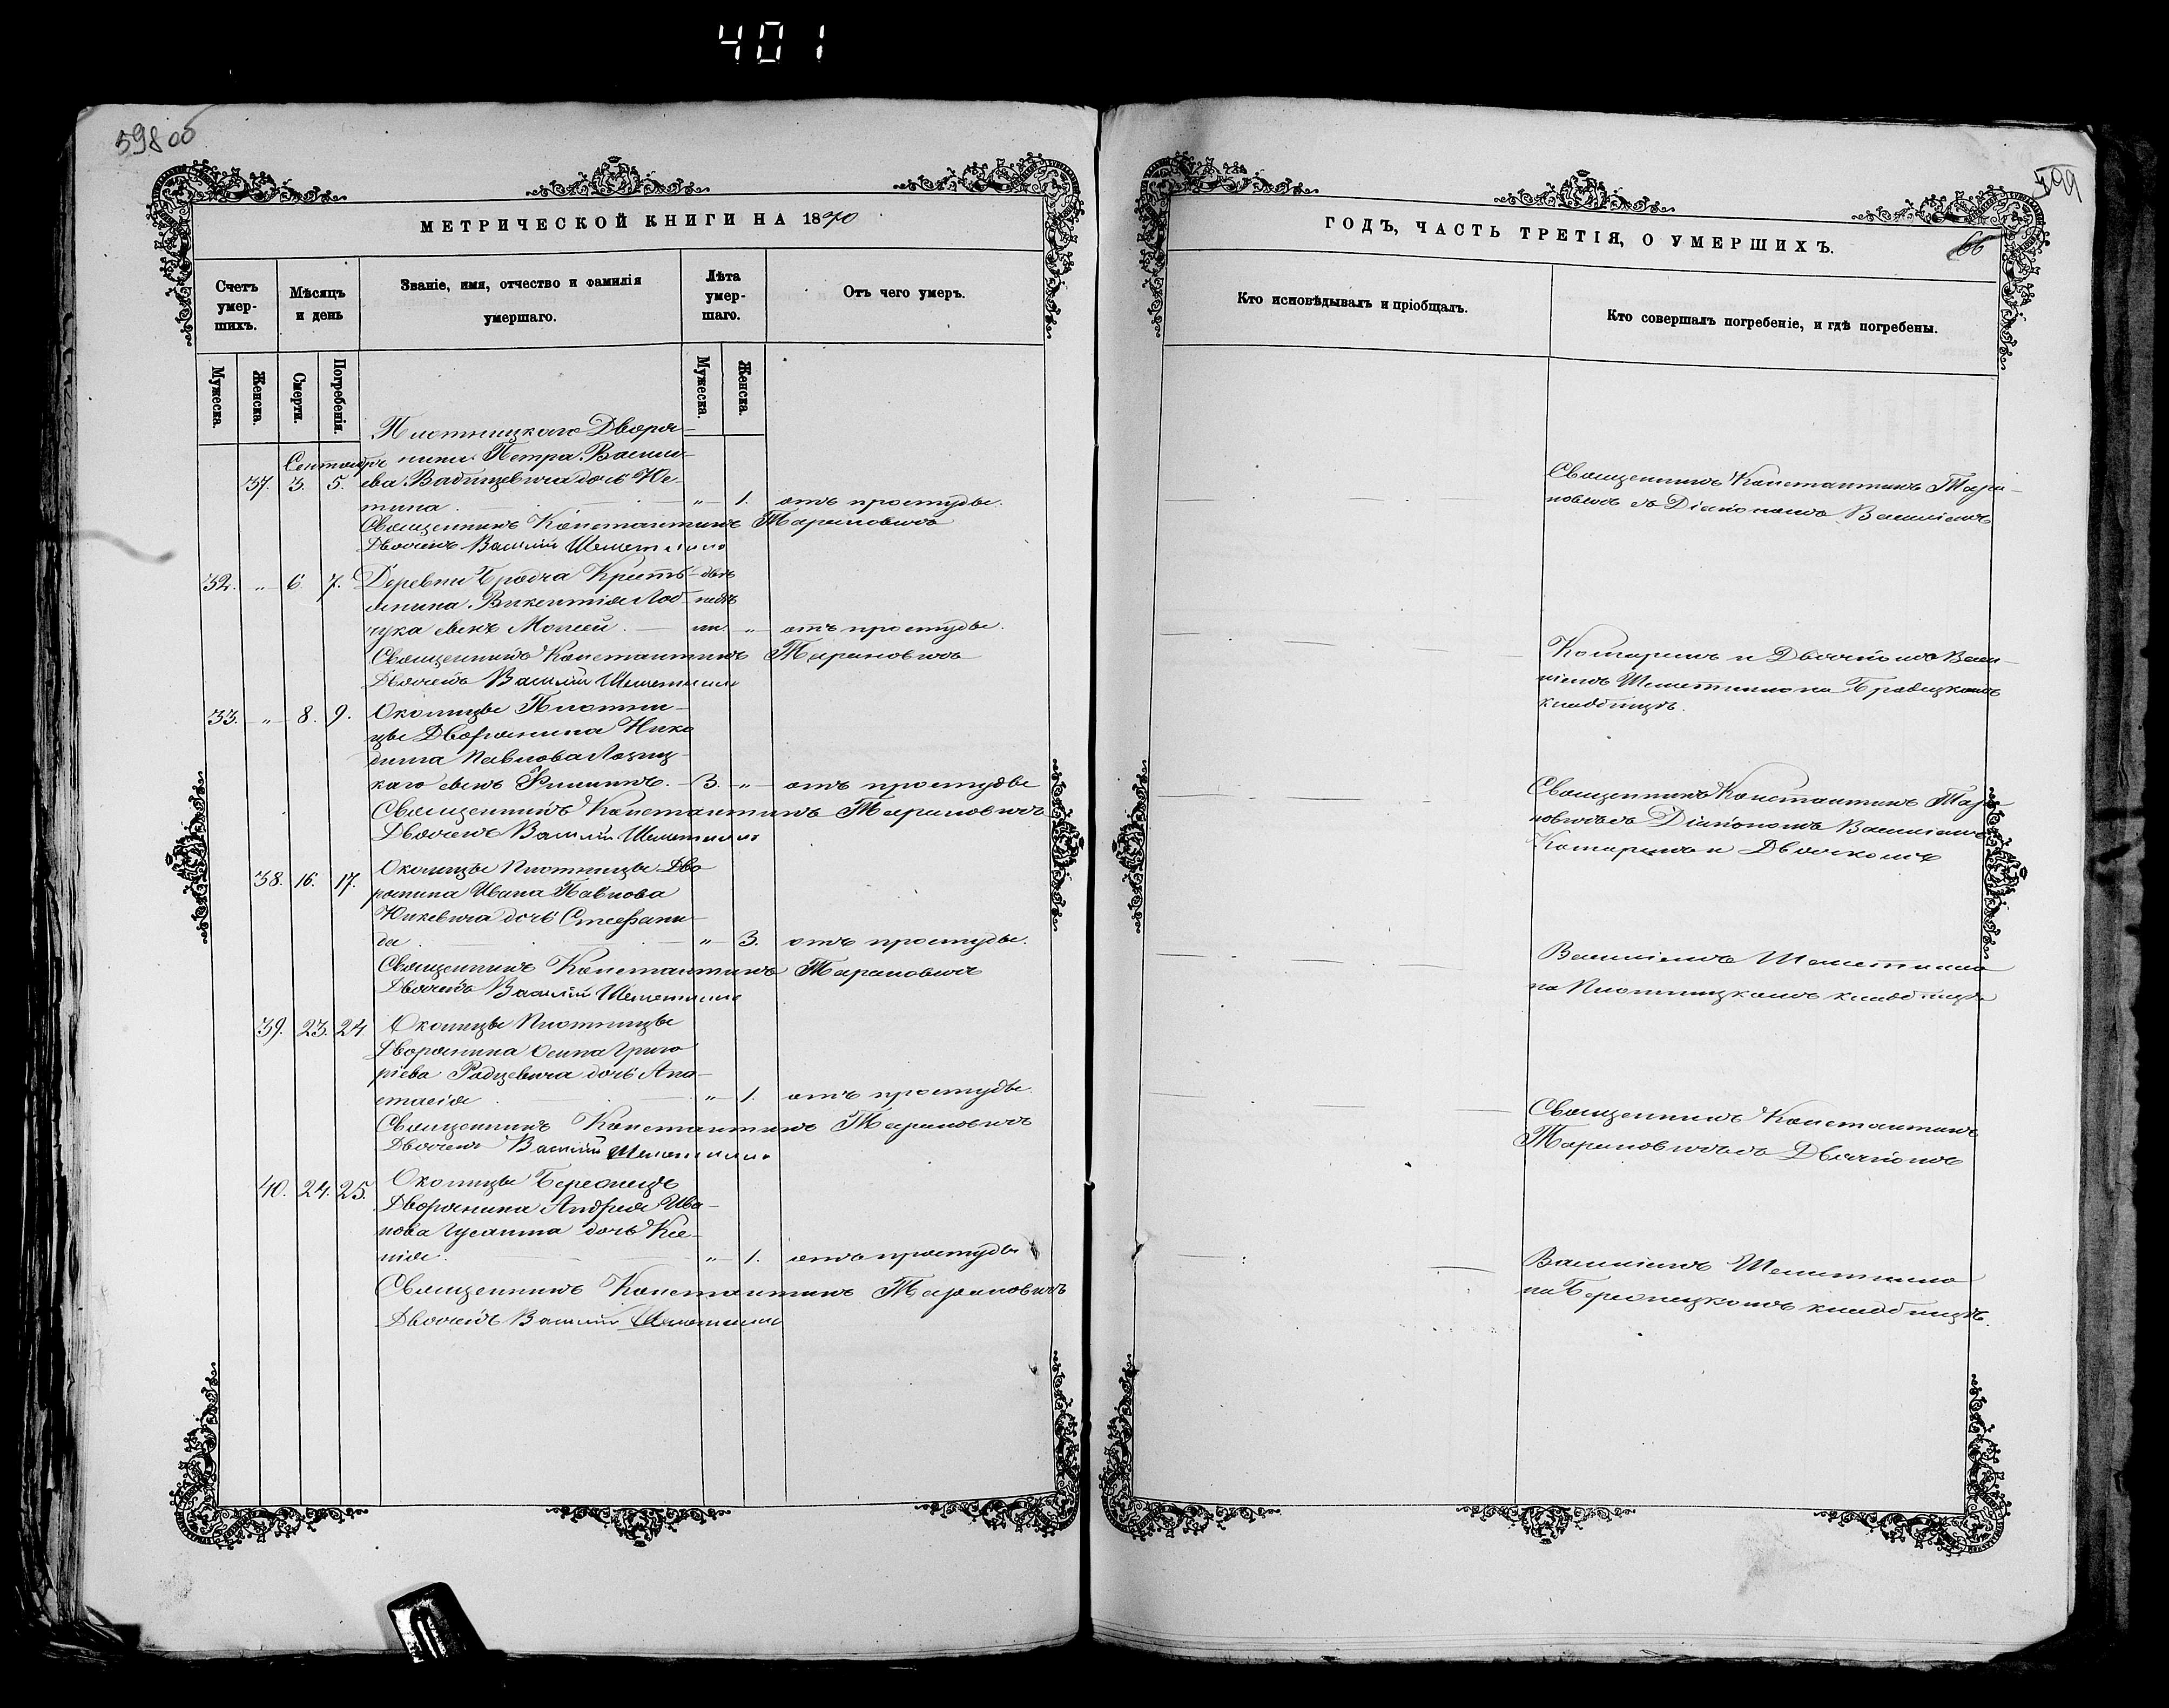 401
59800
МЕТРИЧЕСКОЙ КНИГИ НА 1870
Счетъ
умер-
шихъ.
Мѣсяцъ
и день
Званіе, имя, отчество и фамилія
умершаго.
Лѣта
умер-
шаго.
Отъ чего умеръ.
Мужеска.
Женска.
Смерти.
Погребенія.
Мужеска.
Женска.
Плотницкаго Дворя-
Сентябрь нина Петра Васи-
37. 3. 5. ева дочь Ю-
стина. " 1. отъ простуды.
Священникъ Константинъ Тарановичъ
Дьячекъ Василій Шеметилло
32. " 6 7. Деревни Бродча Кресть- двѣ
янина Викентія Лоб- недѣ
чука сынъ Моисей. ли. " отъ простуды.
Священникъ Константинъ Тарановичъ
Дьячекъ Василій Шеметилло
33. " 8. 9. Околицы Плотни-
цы Дворянина Нико
дима Павлова Лозиц-
каго сынъ Филипъ. 3. " отъ простуды
Священникъ Константинъ Тарановичъ
Дьячекъ Василій Шеметилло
38. 16. 17. Околицы Плотницы Дво
рянина Ивана Павлова
Юхкевича дочь Стефани-
да. " 3. отъ простуды.
Священникъ Константинъ Тарановичъ
Дьячекъ Василій Шеметилло
39. 23. 24 Околицы Плотницы
Дворянина Осипа Григо
ріева Родцевича дочь Ана-
стасія " 1. отъ простуды.
Священникъ Константинъ Тарановичъ
Дьячекъ Василій Шеметилло
40. 24. 25. Околицы Бережецъ
Дворянина Андрея Ива-
нова дочь Ксе-
нія. " 1. отъ простуды
Священникъ Константинъ Тарановичъ
Дьячекъ Василій Шеметилло
599
66
ГОДЪ, ЧАСТЬ ТРЕТІЯ, О УМЕРШИХЪ.
Кто исповѣдывалъ и пріобщалъ.
Кто совершалъ погребеніе, и гдѣ погребены.
Священникъ Константинъ Тара-
новичъ съ Діакономъ Василіемъ
Котаремъ и Дьячкомъ Васи-
ліемъ Шеметилло на Бродецкомъ
кладбищѣ.
Священникъ Константинъ Тара-
новичъ съ Діакономъ Василіемъ
Котаремъ и Дьячкомъ
Василіемъ Шеметилло
на Плотницкомъ кладбищѣ
Священникъ Константинъ
Тарановичъ съ Дьячкомъ
Василіемъ Шеметилло
на Бережецкомъ кладбищѣ.